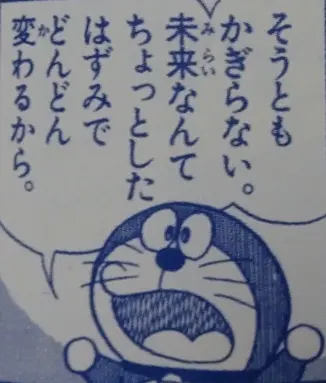 そうとも
かぎらない。
未来なんて
みらい
ちょっとした
はずみで
どんどん
変わるから。
か